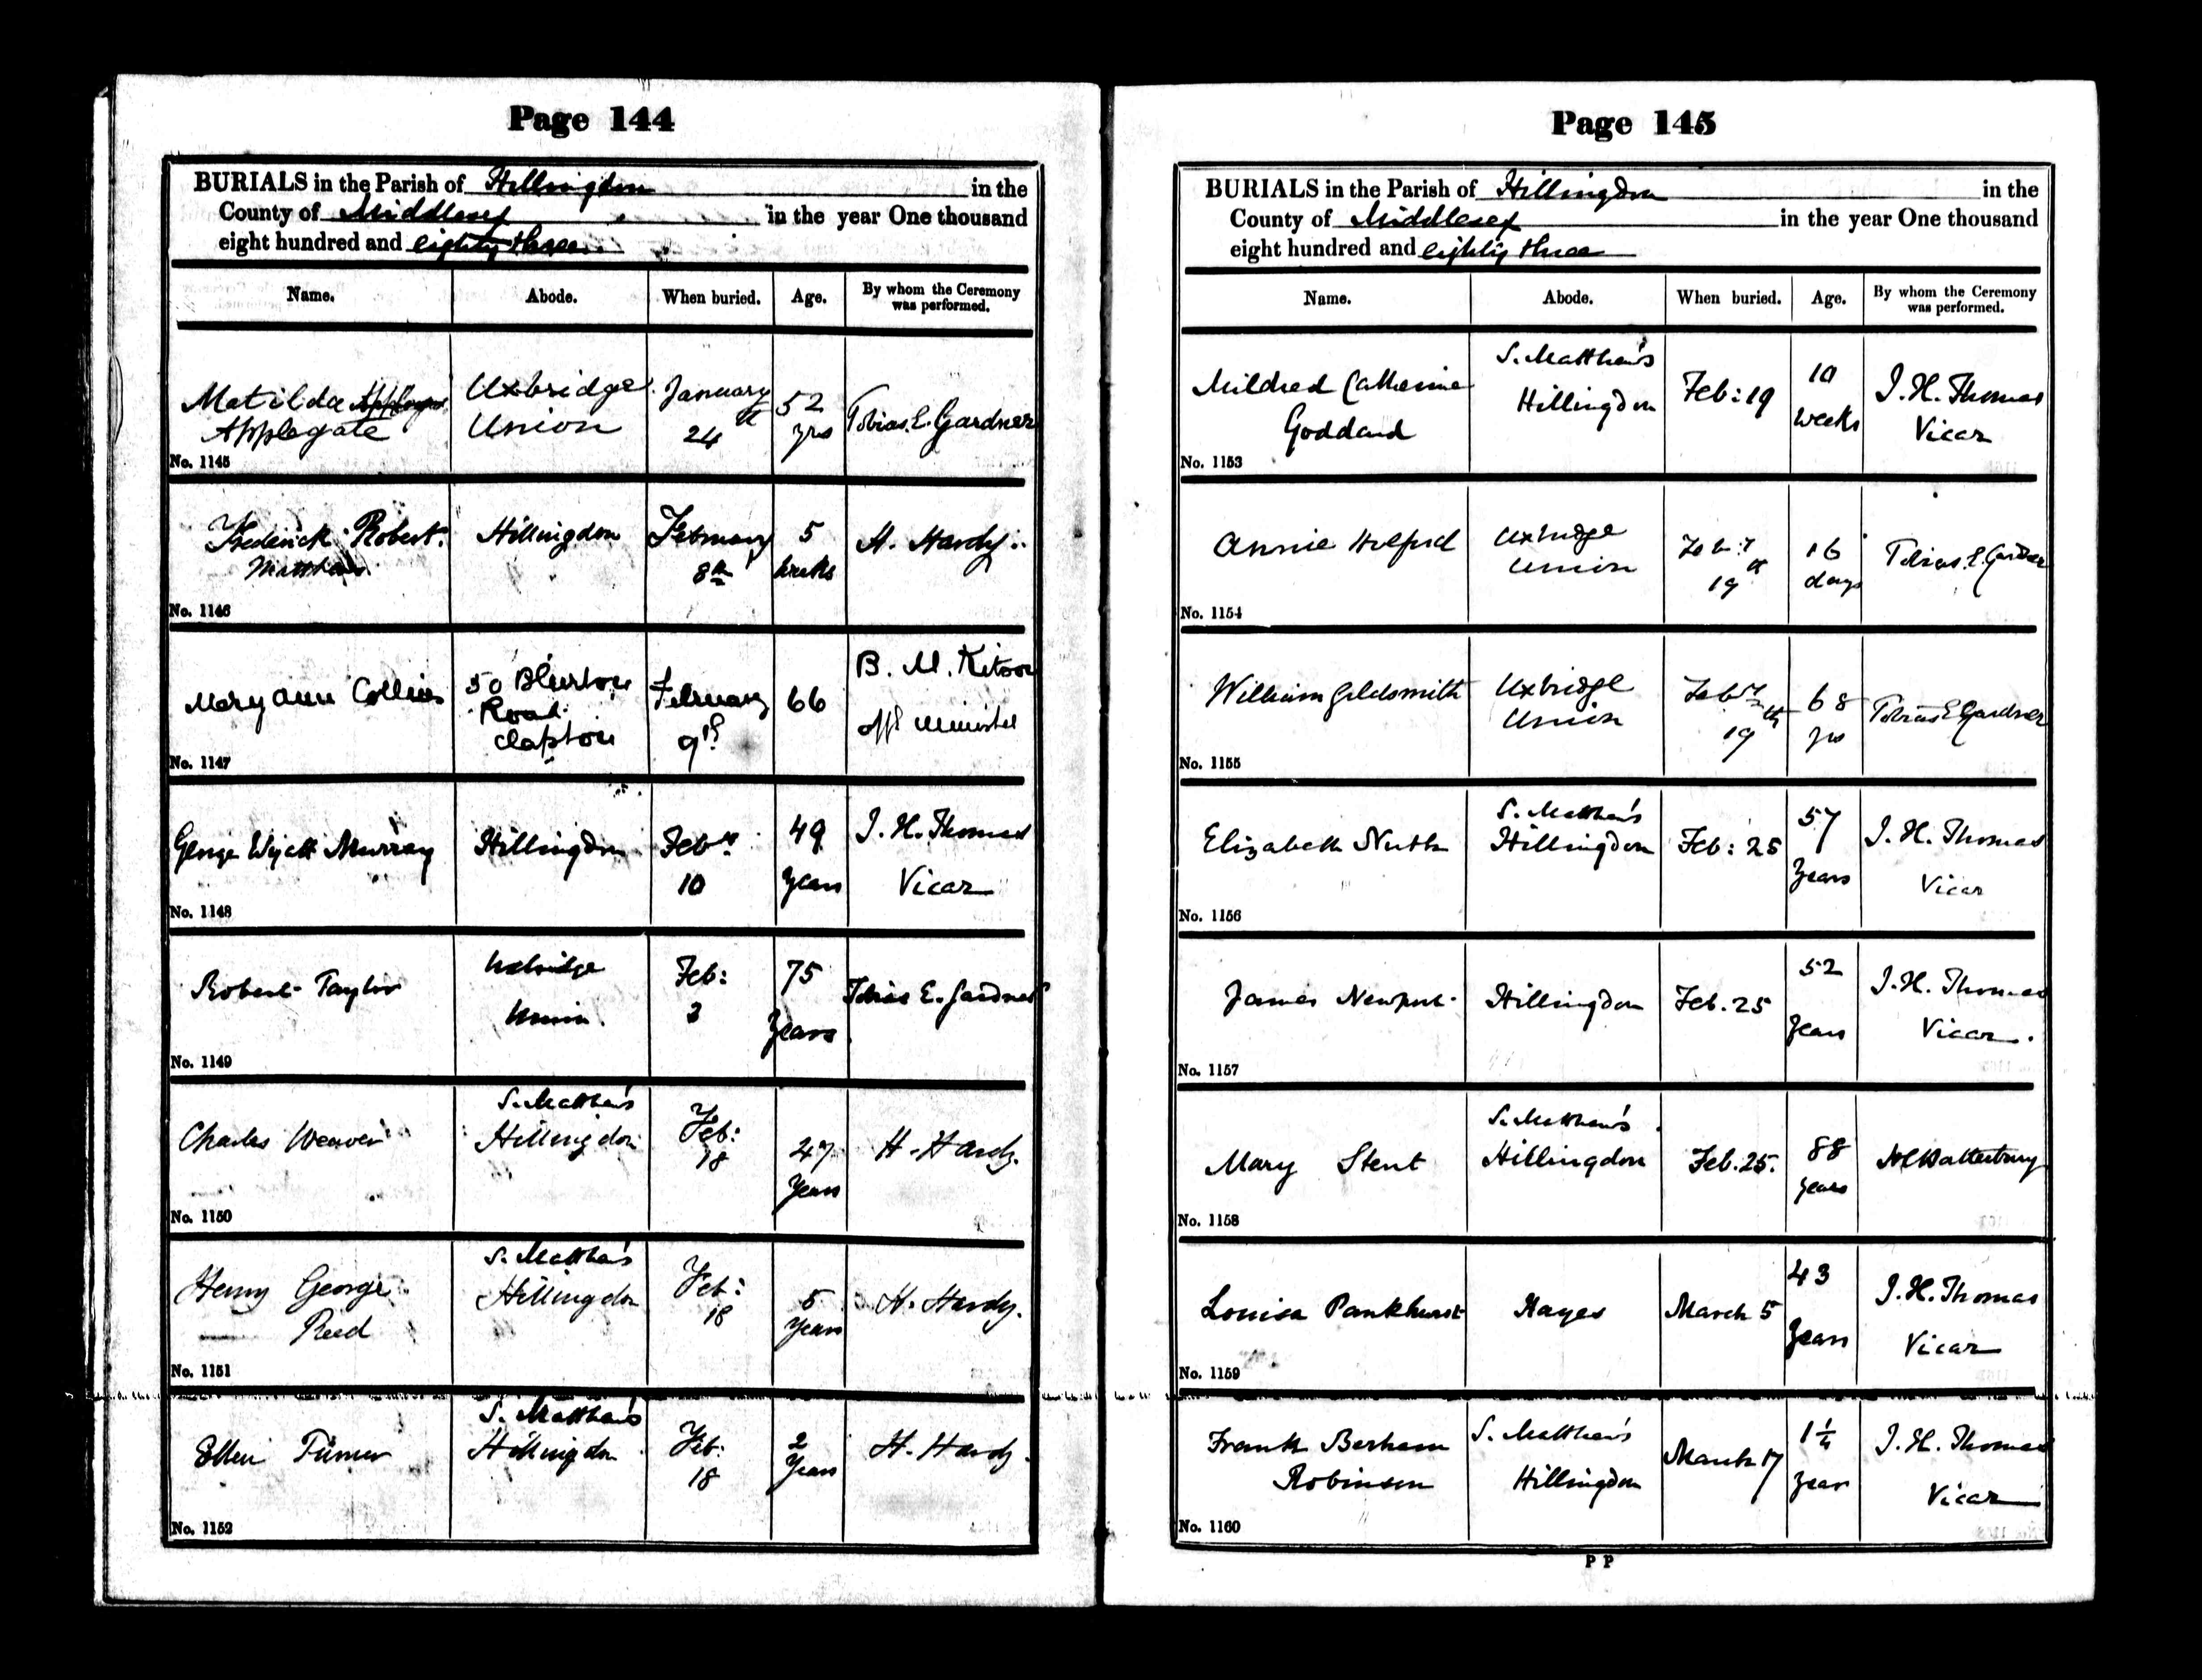 Page 144
BURIALS in the Parish of Hillingdon in the
County of Middlesex in the year One thousand
eight hundred and eighty three
Name. Abode. When buried. Age. By whom the Ceremony was performed.
Matilda Uxbridge January 52 Tobias. E. Gardner
Applegate Union 24th yrs
No. 1145
Frederick Robert Hillingdon February 5 H. Hardy
Matthews 8th weeks
No. 1146
Mary Ann Collins 50 Blurton February 66 B. M. Kitson
Road 9th offg Minister
Clapton
No. 1147
George Wyatt Murray Hillingdon Feby 49 J. H. Thomas
10 years Vicar
No. 1148
Robert Taylor Uxbridge Feb: 75 Tobias E. Gardner
Union 3 years
No. 1149
S. Matthew's
Charles Weaver Hillingdon Feb: 18 47 H. Hardy.
years
No. 1150
S. Matthew's
Henry George Hillingdon Feb: 5 H. Hardy.
Reed 18 years
No. 1151
S. Matthew's
Ellen Turner Hillingdon Feb: 2 H. Hardy.
18 years
No. 1152
Page 145
BURIALS in the Parish of Hillingdon in the
County of Middlesex in the year One thousand
eight hundred and eighty three
Name. Abode. When buried. Age. By whom the Ceremony was performed.
S. Matthew's
Mildred Catherine Hillingdon Feb: 19 10 J. H. Thomas
Goddard weeks Vicar
No. 1153
Annie Holford Uxbridge Feby 16 Tobias. E. Gardner
Union 19th days
No. 1154
William Goldsmith Uxbridge Feby 68 Tobias E Gardner
Union 19th yrs
No. 1155
S. Matthew's
Elizabeth Nuth Hillingdon Feb: 25 57 J. H. Thomas
years Vicar
No. 1156
James Newport Hillingdon Feb. 25 52 J. H. Thomas
years Vicar.
No. 1157
S. Matthew's
Mary Stent Hillingdon Feb. 25. 88
years
No. 1158
Louisa Pankhurst Hayes March 5 43 J. H. Thomas
years Vicar
No. 1159
Frank Berham S. Matthew's March 17 1¼ J. H. Thomas
Robinson Hillingdon year Vicar
No. 1160
P P